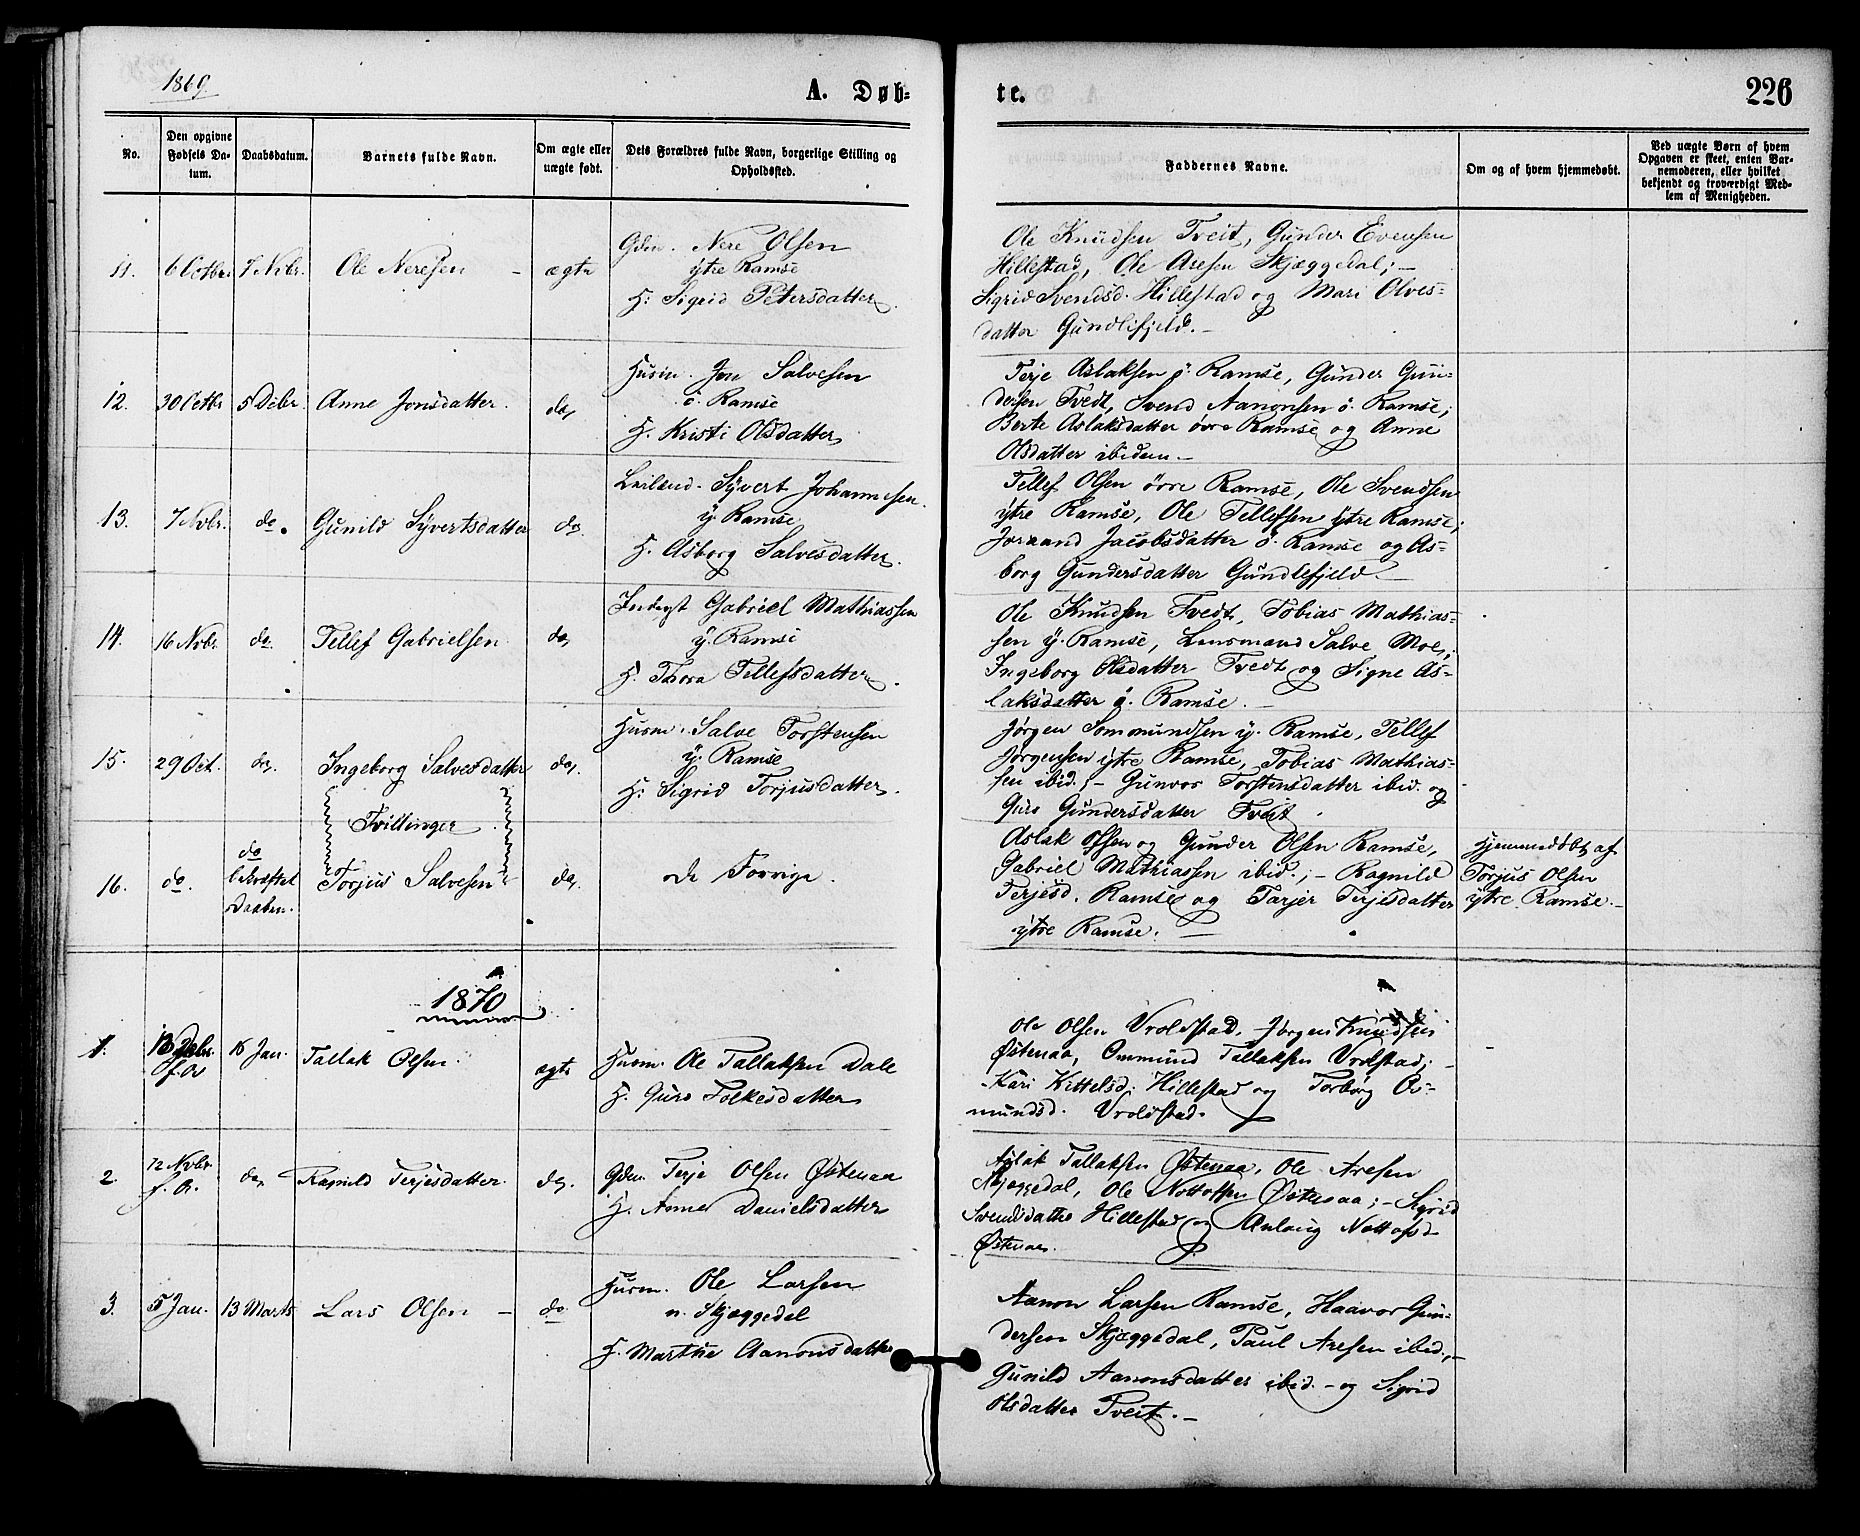 1869.
A. Døb=
te.
226
No.
Den opgivne Fødsels Da-tum.
Daabsdatum.
Barnets fulde Navn.
Om ægte eller uægte født.
Dets Forældres fulde Navn, borgerlige Stilling og Opholdssted.
Faddernes Navne.
Om og af hvem hjemmedøbt.
Ved uægte Børn af hvem Opgaven er skeet, enten Bar-nemoderen, eller hvilket bekjendt og troværdigt Med-lem af Menigheden.
11. 6 Octbr. 7 Nvbr. Ole Neresen – ægte
Gdm. Nere Olsen
ytre Ramse
H: Sigrid Petersdatter.
Ole Knudsen Tveit, Gunder Evensen
Hillestad, Ole Aresen Skjæggedal; –
Sigrid Svendsd. Hillestad og Mari Olves=
datter Gundlefjeld. –
12. 30 Octbr 5 Debr. Anne Jonsdatter. do,
Husm. Jon Salvesen
ö. Ramse
H. Kristi Olsdatter,
Terje Aslaksen ö. Ramse, Gunder Gun=
dersen Tvedt, Svend Aanonsen ö. Ramse;
Berte Aslaksdatter övre Ramse og Anne
Olsdatter ibidem. –
13. 7 Nvbr. do. Gunild Syvertsdatter do.
Leilend. Syvert Johannesen.
y. Ramse
H. Asborg Salvesdatter.
Tellef Olsen övre Ramse, Ole Svendsen
ytre Ramse, Ole Tellefsen ytre Ramse;
Joraand Jacobsdatter ö. Ramse og As=
borg Gundersdatter Gundlefjeld. –
14. 16 Nvbr. do. Tellef Gabrielsen do,
Inderst Gabriel Mathiassen
y. Ramse
H. Thora Tellefsdatter.
Ole Knudsen Tvedt, Tobias Mathias=
sen y. Ramse, Lensmand Salve Moe;
Ingeborg Olsdatter Tvedt og Signe As=
laksdatter ö. Ramse. –
15. 29 Oct. do. Ingeborg Salvesdatter do.
Husm. Salve Torstensen
y. Ramse
H: Sigrid Torjusdatter.
Jørgen Sommundsen y. Ramse, Tellef
Jørgensen ytre Ramse, Tobias Mathias=
sen ibid.; – Gunvor Torstensdatter ibid. og
Guro Gundersdatter Tveit.
Tvillinger
16. do. do bekræftet Daaben. Torjus Salvesen do,
de Forrige.
Aslak Olsen og Gunder Olsen Ramse,
Gabriel Mathiassen ibid.; – Ragnild
Terjesd. Ramse og Tarjer Terjesdatter
ytre Ramse. –
Hjemmedøbt af
Torjus Olsen
ytre Ramse. –
1870
1. f. A. 16 Jan. Tallak Olsen. ægte
Husm. Ole Tallaksen Dale
H. Guro Folkesdatter
Ole Olsen Vrolestad, Jørgen Knudsen
Østenaa, Ommund Tallaksen Vrolstad; –
Kari Kittelsd. Hillestad og Torborg O=
mundsd. Vrolstad.
2. 12 Nvbr. f. A. do, Ragnild Terjesdatter. do.
Gdm. Terje Olsen Østenaa
H. Anne Danielsdatter
Aslak Tallaksen Østenaa, Ole Aresen
Skjæggedal, Ole Nottofsen Østenaa; – Sigrid
Svendsdatter Hillestad og Anlaug Nottofsd
Østenaa.
3. 5 Jan. 13 Marts Lars Olsen – do
Husm. Ole Larsen
n. Skjæggedal
H. Marthe Aanonsdatter
Aanon Larsen Ramse, Haavor Gun=
dersen Skjæggedal, Paul Aresen ibid.; –
Gunild Aanonsdatter ibid. – og Sigrid
Olsdatter Tveit. –